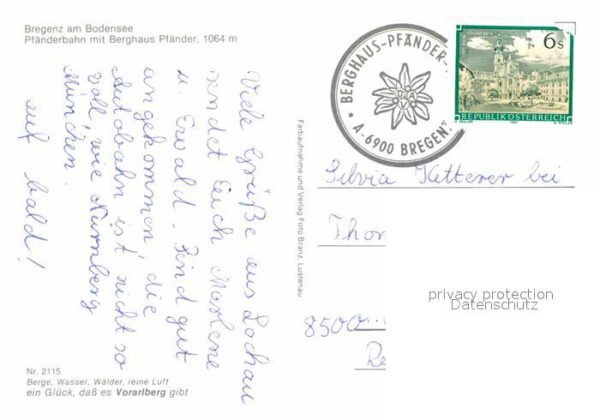 Bregenz am Bodensee
Pfänderbahn mit Berghaus Pfänder, 1064 m
Viele Grüße aus Lochau
sendet Euch Marlene
u. Ewald. Sind gut
angekommen, die
Autobahn ist nicht so
voll, wie Nürnberg
München.
auf bald!
Nr. 2115
Berge, Wasser, Wälder, reine Luft
ein Glück, daß es Vorarlberg gibt
Farbaufnahme und Verlag Foto Branz, Lustenau
• BERGHAUS-PFÄNDER •
A-6900 BREGENZ
6 S
REPUBLIK ÖSTERREICH
Silvia Ketterer bei
Thom
8500
Re
privacy protection
Datenschutz